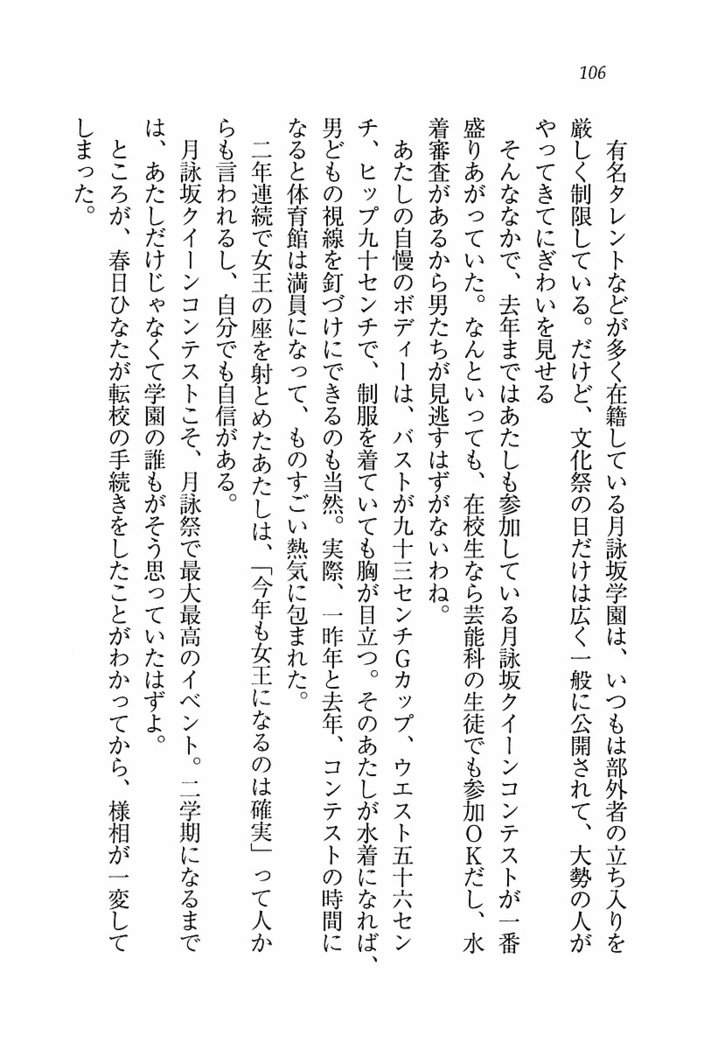 106
有名タレントなどが多く在籍している月詠坂学園は、いつもは部外者の立ち入りを
厳しく制限している。だけど、文化祭の日だけは広く一般に公開されて、大勢の人が
やってきてにぎわいを見せる
そんななかで、去年まではあたしも参加している月詠坂クイーンコンテストが一番
盛りあがっていた。なんといっても、在校生なら芸能科の生徒でも参加OKだし、水
着審査があるから男たちが見逃すはずがないわね。
あたしの自慢のボディーは、バストが九十三センチGカップ、ウエスト五十六セン
チ、ヒップ九十センチで、制服を着ていても胸が目立つ。そのあたしが水着になれば、
男どもの視線を釘づけにできるのも当然。実際、一昨年と去年、コンテストの時間に
なると体育館は満員になって、ものすごい熱気に包まれた。
二年連続で女王の座を射とめたあたしは、「今年も女王になるのは確実」って人か
らも言われるし、自分でも自信がある。
月詠坂クイーンコンテストこそ、月詠祭で最大最高のイベント。二学期になるまで
は、あたしだけじゃなくて学園の誰もがそう思っていたはずよ。
ところが、春日ひなたが転校の手続きをしたことがわかってから、様相が一変して
しまった。